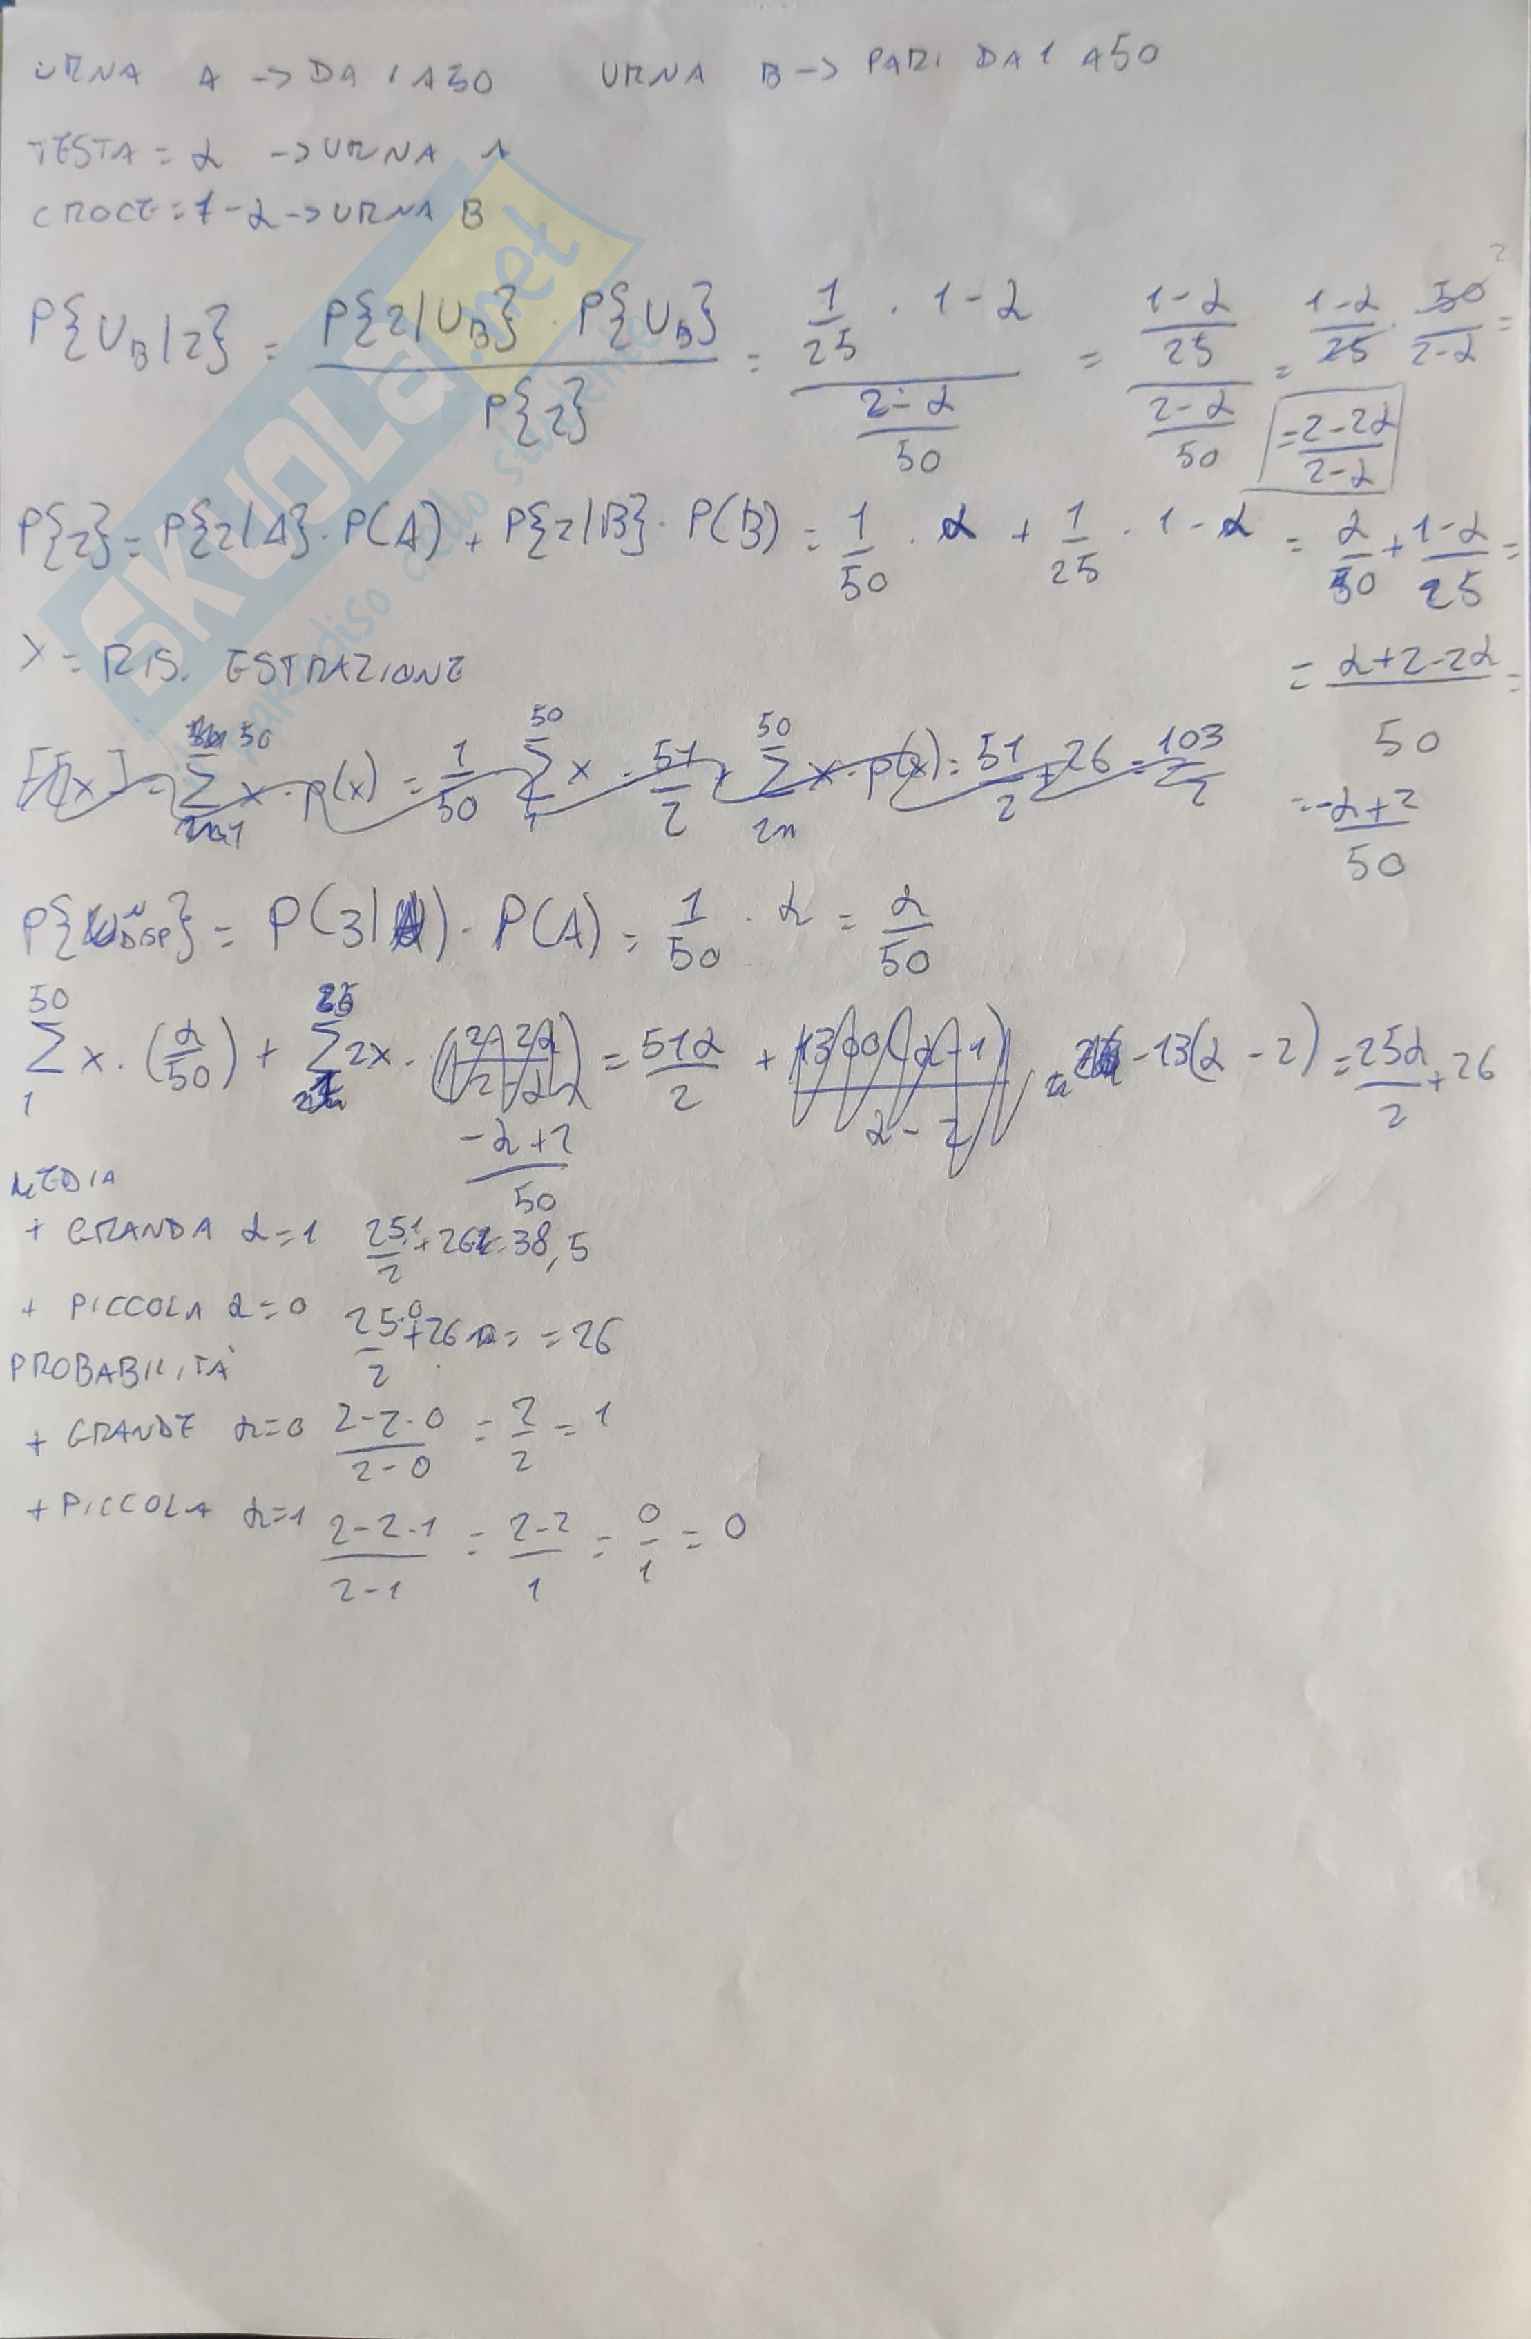 URNA A -> DA 1 A 50 URNA B -> PARI DA 1 A 50
TESTA = α -> URNA A
CROCE = 1-α -> URNA B
P{U_B|2} = P{2|U_B} · P{U_B} / P{2} = (1/25 · 1-α) / ((2-α)/50) = ((1-α)/25) / ((2-α)/50) = (1-α)/25 · 50/(2-α) =
= (2-2α)/(2-α)
P{2} = P{2|A} · P(A) + P{2|B} · P(B) = 1/50 · α + 1/25 · 1-α = α/50 + (1-α)/25 =
= (α+2-2α)/50 =
= (-α+2)/50
X = RIS. ESTRAZIONE
E[x] = Σ x · p(x) = 1/50 Σ x = 51/2 + Σ x · p(x) = 51/2 + 26 = 103/2
P{N DISP} = P(3|A) · P(A) = 1/50 · α = α/50
Σ x · (α/50) + Σ 2x · (-α+2)/50 = 51α/2 -13(α-2) = 25α/2 + 26
MEDIA
+ GRANDA α=1 25·1/2 + 26 = 38,5
+ PICCOLA α=0 25·0/2 + 26 = = 26
PROBABILITÀ
+ GRANDE α=0 (2-2·0)/(2-0) = 2/2 = 1
+ PICCOLA α=1 (2-2·1)/(2-1) = (2-2)/1 = 0/1 = 0
SKUOLa.net
paradiso dello studente